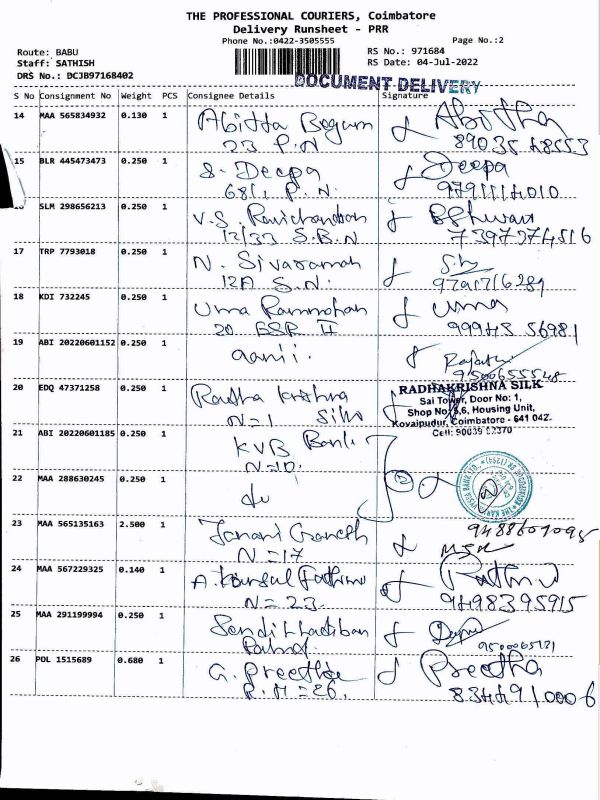 THE PROFESSIONAL COURIERS, Coimbatore
Delivery Runsheet - PRR
Phone No.:0422-3505555
Page No.:2
Route: BABU
Staff: SATHISH
DRS No.: DCJB97168402
RS No.: 971684
RS Date: 04-Jul-2022
DOCUMENT DELIVERY
S No Consignment No Weight PCS Consignee Details Signature
14 MAA 565834932 0.130 1 Abitta Begum Abitha
23 P.N 89035 48553
15 BLR 445473473 0.250 1 S. Deepa Deepa
P.N. 9791114010
SLM 298656213 0.250 1 V.S. Ravichandran
12/33 S.B.N 7397774516
17 TRP 7793018 0.250 1 N. Sivaramah
12A S.N. 9791716289
18 KDI 732245 0.250 1 Uma Rammohan Uma
20 ESR II 99945 56981
19 ABI 20220601152 0.250 1
9500655548
20 EDQ 47371258 0.250 1 Radha Krishna
N=1 Silks
RADHAKRISHNA SILK
Sai Tower, Door No: 1,
Shop No: 5,6, Housing Unit,
Kovaipudur, Coimbatore - 641 042.
Cell: 90039
21 ABI 20220601185 0.250 1 KVB Bank
N=10.
22 MAA 288630245 0.250 1 du
23 MAA 565135163 2.500 1 Janani Ganesh
N=17
9488601095
24 MAA 567229325 0.140 1 A. Fathima
N=23. 9498395915
25 MAA 291199994 0.250 1
26 POL 1515689 0.680 1 G. Preetha Preetha
P.M=26. 8344910006